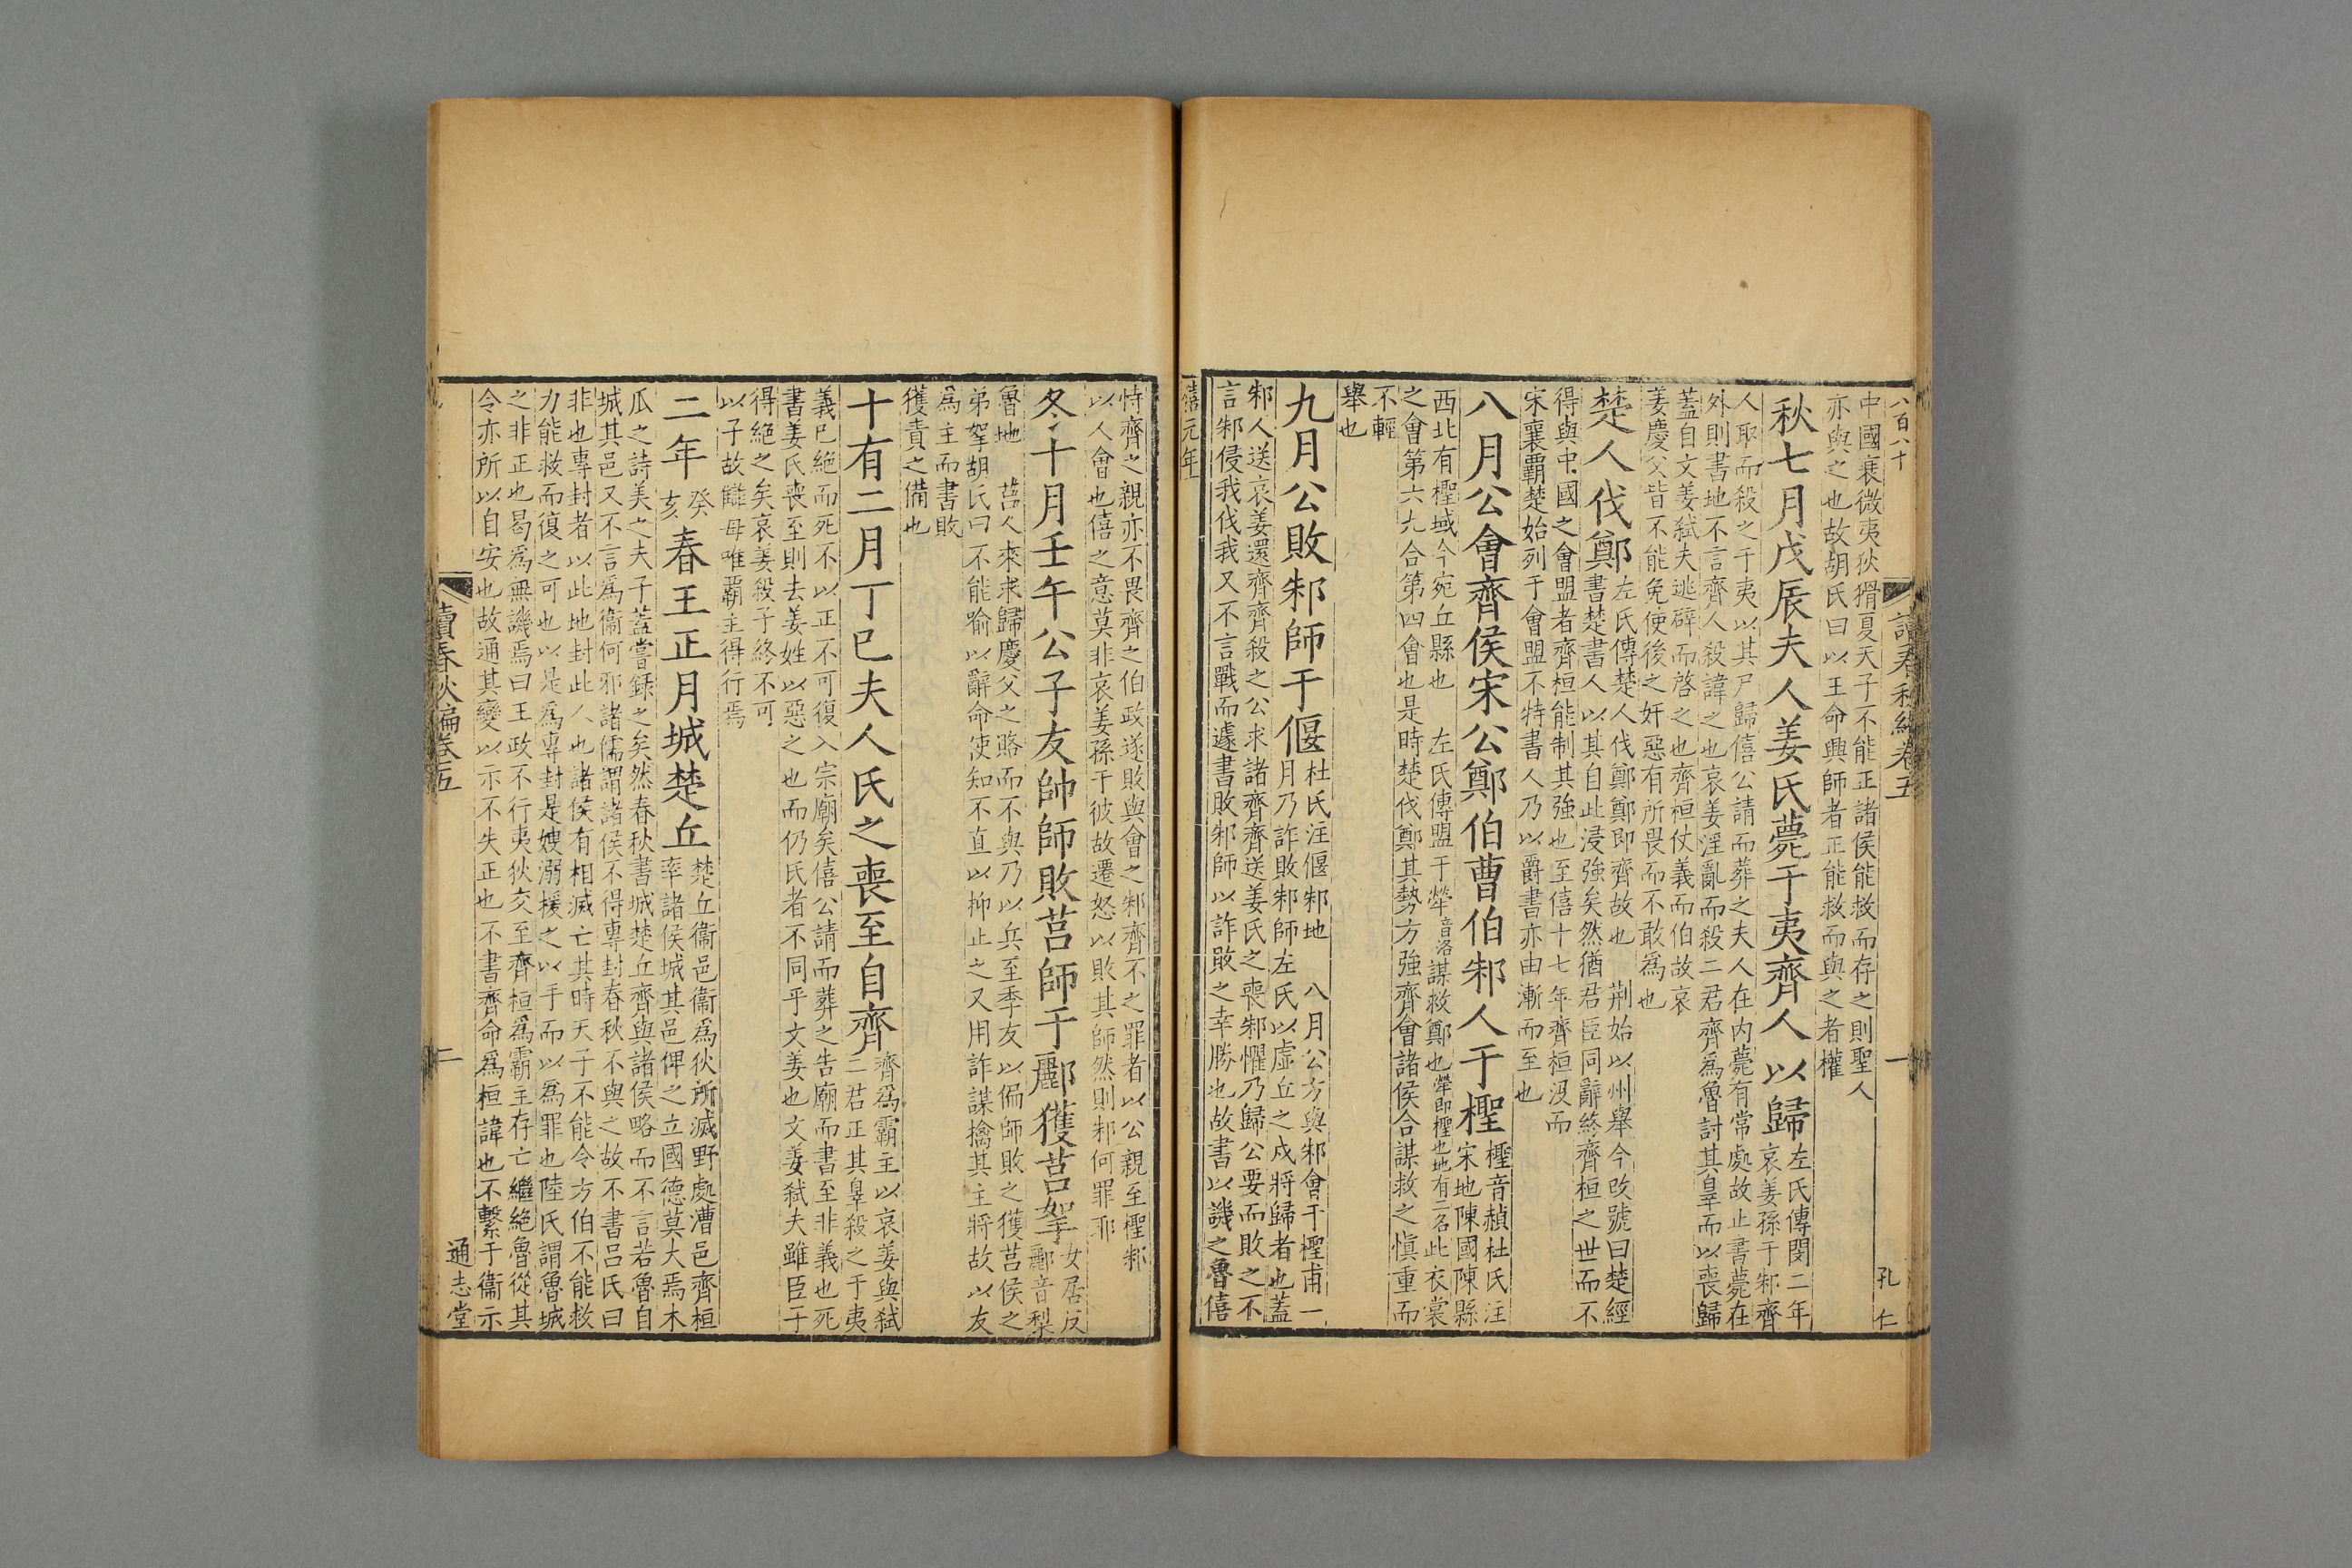 八百八十
讀春秋編卷五
一
孔仁
中國衰微夷狄猾夏天子不能正諸侯能救而存之則聖人
亦與之也故胡氏曰以王命興師者正能救而與之者權
秋七月戊辰夫人姜氏薨于夷齊人以歸
左氏傳閔二年
哀姜孫于邾齊
人取而殺之于夷以其尸歸僖公請而葬之夫人在內薨有常處故止書薨在
外則書地不言齊人殺諱之也哀姜淫亂而殺二君齊為魯討其辠而以喪歸
蓋自文姜弑夫逃辟而啓之也齊桓仗義而伯故哀
姜慶父皆不能免使後之奸惡有所畏而不敢為也
楚人伐鄭
左氏傳楚人伐鄭鄭即齊故也 荊始以州舉今改號曰楚經
書楚書人以其自此浸強矣然猶君臣同辭終齊桓之世而不
得與中國之會盟者齊桓能制其強也至僖十七年齊桓沒而
宋襄霸楚始列于會盟不特書人乃以爵書亦由漸而至也
八月公會齊侯宋公鄭伯曹伯邾人于檉
檉音赬杜氏注
宋地陳國陳縣
西北有檉城今宛丘縣也 左氏傳盟于犖音洛謀救鄭也犖即檉也地有二名此衣裳
之會第六九合第四會也是時楚伐鄭其勢方強齊會諸侯合謀救之慎重而
不輕
舉也
九月公敗邾師于偃
杜氏注偃邾地 八月公方與邾會于檉甫一
月乃詐敗邾師左氏以虛丘之戍將歸者也蓋
邾人送哀姜還齊齊殺之公求諸齊齊送姜氏之喪邾懼乃歸公要而敗之不
言邾侵我伐我又不言戰而遽書敗邾師以詐敗之幸勝也故書以譏之魯僖
僖元年
恃齊之親亦不畏齊之伯政遂敗與會之邾齊不之罪者以公親至檉邾
以人會也僖之意莫非哀姜孫于彼故遷怒以敗其師然則邾何罪耶
冬十月壬午公子友帥師敗莒師于酈獲莒挐
女居反
酈音梨
魯地 莒人來求歸慶父之賂而不與乃以兵至季友以偏師敗之獲莒侯之
弟挐胡氏曰不能喻以辭命使知不直以抑止之又用詐謀擒其主將故以友
為主而書敗
獲責之備也
十有二月丁巳夫人氏之喪至自齊
齊為霸主以哀姜與弑
二君正其辠殺之于夷
義已絕而死不以正不可復入宗廟矣僖公請而葬之告廟而書至非義也死
書姜氏喪至則去姜姓以惡之也而仍氏者不同乎文姜也文姜弑夫雖臣子
得絕之矣哀姜殺子終不可
以子故讎母唯霸主得行焉
二年
癸
亥
春王正月城楚丘
楚丘衞邑衞為狄所滅野處漕邑齊桓
率諸侯城其邑俾之立國德莫大焉木
瓜之詩美之夫子蓋嘗錄之矣然春秋書城楚丘齊與諸侯略而不言若魯自
城其邑又不言為衞何邪諸儒謂諸侯不得專封春秋不與之故不書呂氏曰
非也專封者以此地封此人也諸侯有相滅亡其時天子不能令方伯不能救
力能救而復之可也以是為專封是嫂溺援之以手而以為罪也陸氏謂魯城
之非正也曷為無譏焉曰王政不行夷狄交至齊桓為霸主存亡繼絕魯從其
令亦所以自安也故通其變以示不失正也不書齊命為桓諱也不繫于衞示
讀春秋編卷五
二
通志堂